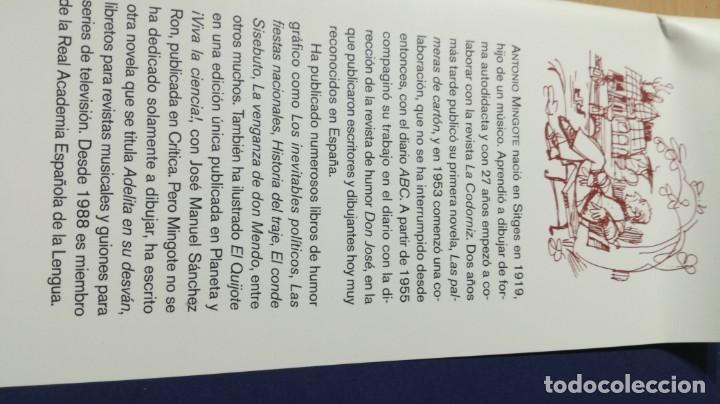 ANTONIO MINGOTE nació en Sitges en 1919,
hijo de un músico. Aprendió a dibujar de for-
ma autodidacta y con 27 años empezó a co-
laborar con la revista La Codorniz. Dos años
más tarde publicó su primera novela, Las pal-
meras de cartón, y en 1953 comenzó una co-
laboración, que no se ha interrumpido desde
entonces, con el diario ABC. A partir de 1955
compaginó su trabajo en el diario con la di-
rección de la revista de humor Don José, en la
que publicaron escritores y dibujantes hoy muy
reconocidos en España.
Ha publicado numerosos libros de humor
gráfico como Los inevitables políticos, Las
fiestas nacionales, Historia del traje, El conde
Sisebuto, La venganza de don Mendo, entre
otros muchos. También ha ilustrado El Quijote
en una edición única publicada en Planeta y
¡Viva la ciencia!, con José Manuel Sánchez
Ron, publicada en Crítica. Pero Mingote no se
ha dedicado solamente a dibujar, ha escrito
otra novela que se titula Adelita en su desván,
libretos para revistas musicales y guiones para
series de televisión. Desde 1988 es miembro
de la Real Academia Española de la Lengua.
todocoleccion